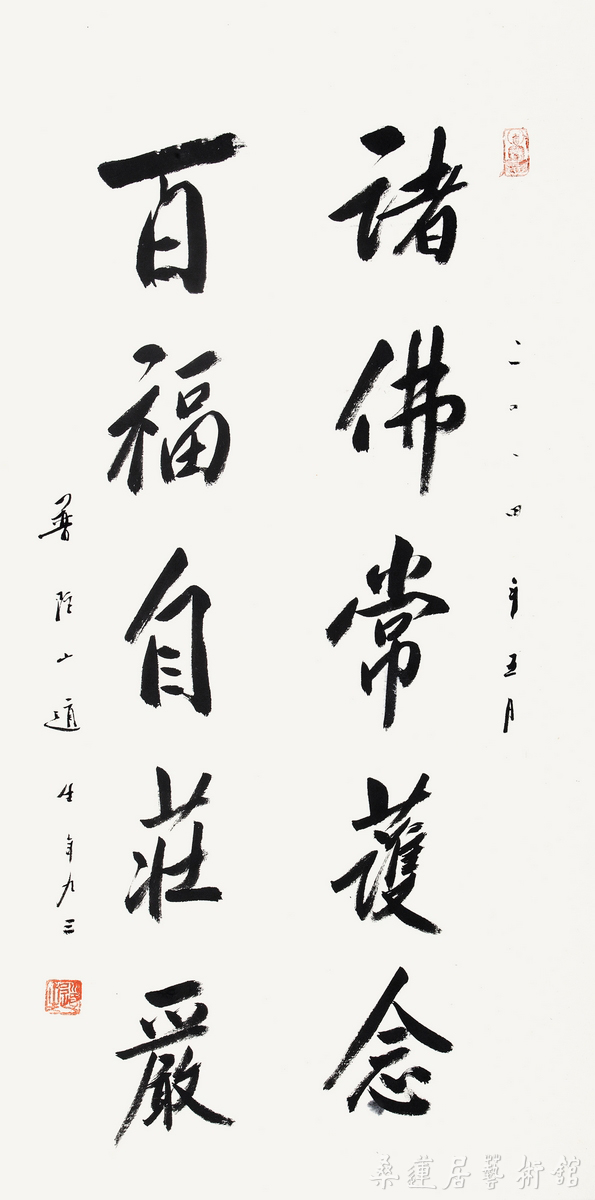 二〇〇四年五月
諸佛常護念
百福自莊嚴
普陀山道生年九三
桑蓮居藝術館